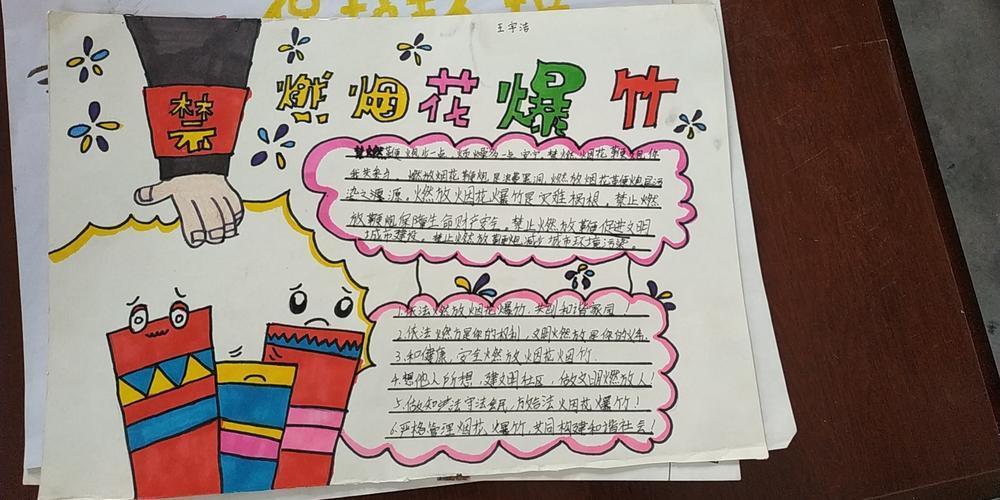 王宇洁
禁
燃烟花爆竹
禁燃鞭炮少一点 烦燥多一点安宁 禁燃烟花鞭炮你
我共参与。燃放烟花鞭炮是浪费黑洞,燃放烟花鞭炮是污
染之源源。燃放烟花爆竹是灾难祸根,禁止燃
放鞭炮保障生命财产安全。禁止燃放鞭炮促进文明
城市建设。禁止燃放鞭炮减少城市环境污染。
1.依法燃放烟花爆竹,共创和谐家园!
2.依法燃放是你的权利,文明燃放是你的义务.
3.和健康,安全燃放烟花烟竹.
4.想他人所想,建文明社区,做文明燃放人!
5.做知法守法 烟花爆竹!
6.严格管理烟花爆竹,共同构建和谐社会!